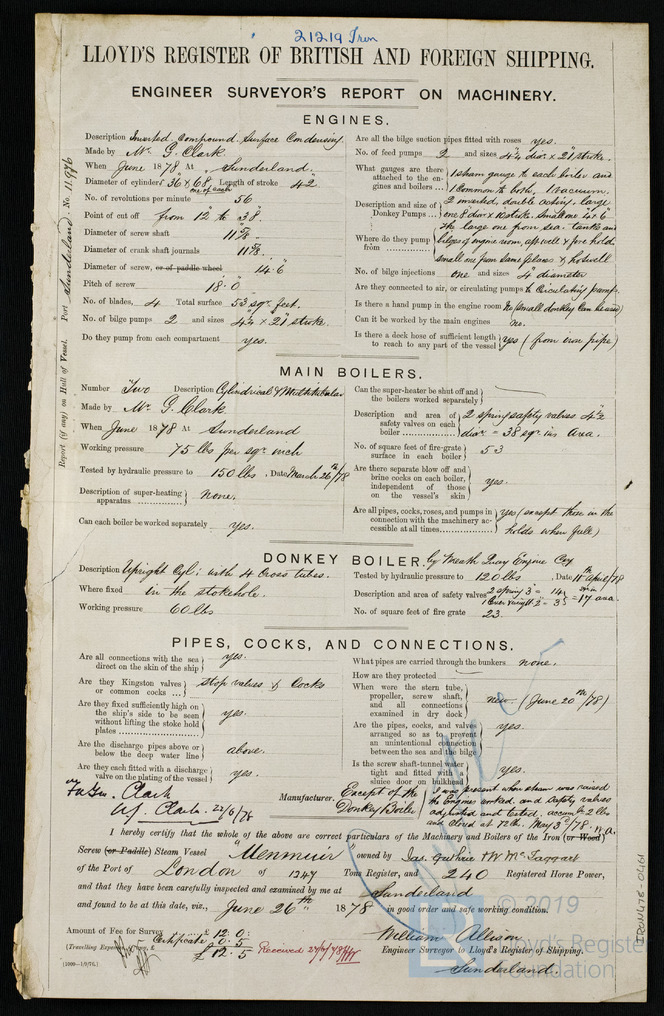 21219 Iron
LLOYD'S REGISTER OF BRITISH AND FOREIGN SHIPPING.
ENGINEER SURVEYOR'S REPORT ON MACHINERY.
Report (if any) on Hull of Vessel. Port Sunderland No. 11,976
ENGINES.
Description Inverted Compound Surface Condensing
Made by Mr. G. Clark
When June 1878 At Sunderland.
Diameter of cylinders 36" & 68" Length of stroke 42
one of each
No. of revolutions per minute 56
Point of cut off from 12" to 38"
Diameter of screw shaft 11 5/8
Diameter of crank shaft journals 11 5/8
Diameter of screw, or of paddle wheel 14.6
Pitch of screw 18.0
No. of blades, 4 Total surface 53 sqr. feet.
No. of bilge pumps 2 and sizes 4 1/2 x 21" stroke.
Do they pump from each compartment yes.
Are all the bilge suction pipes fitted with roses yes.
No. of feed pumps 2 and sizes 4 1/2 diar. x 21" stroke.
What gauges are there attached to the engines and boilers ... 1 steam gauge to each boiler and
1 Common to both, 1 vacuum.
Description and size of Donkey Pumps ... 2 inverted, double acting. large
one 8" diar x 10 stroke. small one 4" x 6"
Where do they pump from ............ The large one from sea. tanks and
bilges of engine room, aft well & fore hold
small one from same places & hotwell
No. of bilge injections one and sizes 4" diameter
Are they connected to air, or circulating pumps to Circulating pump.
Is there a hand pump in the engine room No (small donkey can be used)
Can it be worked by the main engines no.
Is there a deck hose of sufficient length to reach to any part of the vessel yes (from iron pipe)
MAIN BOILERS.
Number Two Description Cylindrical & Multitubular
Made by Mr. G. Clark
When June 1878 At Sunderland
Working pressure 75 lbs per sqr. inch
Tested by hydraulic pressure to 150 lbs, Date March 26th/78
Description of super-heating apparatus ........ None.
Can each boiler be worked separately yes.
Can the super-heater be shut off and the boilers worked separately
Description and area of safety valves on each boiler ............... 2 spring safety valves 4 1/2
diar. = 38 sqr. ins area.
No. of square feet of fire-grate surface in each boiler 53
Are there separate blow off and brine cocks on each boiler, independent of those on the vessel's skin yes.
Are all pipes, cocks, roses, and pumps in connection with the machinery accessible at all times............ yes (except those in the
holds when full)
DONKEY BOILER. by Meath Quay Engine Coy
Description Upright Cyl: with 4 Cross tubes.
Where fixed in the stokehole.
Working pressure 60 lbs
Tested by hydraulic pressure to 120 lbs, Date 11th April/78
Description and area of safety valves 2 spring 3" = 14
1 lever weight 2" = 3.5 = 17 area
No. of square feet of fire grate 23
PIPES, COCKS, AND CONNECTIONS.
Are all connections with the sea direct on the skin of the ship yes.
Are they Kingston valves or common cocks ... stop valves & Cocks
Are they fixed sufficiently high on the ship's side to be seen without lifting the stoke hold plates ............... yes.
Are the discharge pipes above or below the deep water line above.
Are they each fitted with a discharge valve on the plating of the vessel yes.
What pipes are carried through the bunkers none.
How are they protected
When were the stern tube, propeller, screw shaft, and all connections examined in dry dock new. (June 20th/78)
Are the pipes, cocks, and valves arranged so as to prevent an unintentional connection between the sea and the bilge yes.
Is the screw shaft-tunnel water tight and fitted with a sluice door on bulkhead yes.
Clark
W. Clark 22/6/78
Manufacturer. Except of the
Donkey Boiler
I was present when steam was raised
the Engines worked, and safety valves
adjusted and tested,
at 72 lb. May 3rd/78. W.A.
I hereby certify that the whole of the above are correct particulars of the Machinery and Boilers of the Iron (or Wood)
Screw (or Paddle) Steam Vessel "Menmuir" owned by Jas. Guthrie W. McTaggart
of the Port of London of 1247 Tons Register, and 240 Registered Horse Power,
and that they have been carefully inspected and examined by me at Sunderland
and found to be at this date, viz., June 26th 1878 in good order and safe working condition.
Amount of Fee for Survey ......£ 12.0.
Certificate 0.5
(Travelling Expenses, £
£ 12.5
Received 27/6/78
William Allison
Engineer Surveyor to Lloyd's Register of Shipping.
Sunderland.
[1000—1/9/76.]
IRON476-0461
© 2019
Lloyd's Register
Foundation